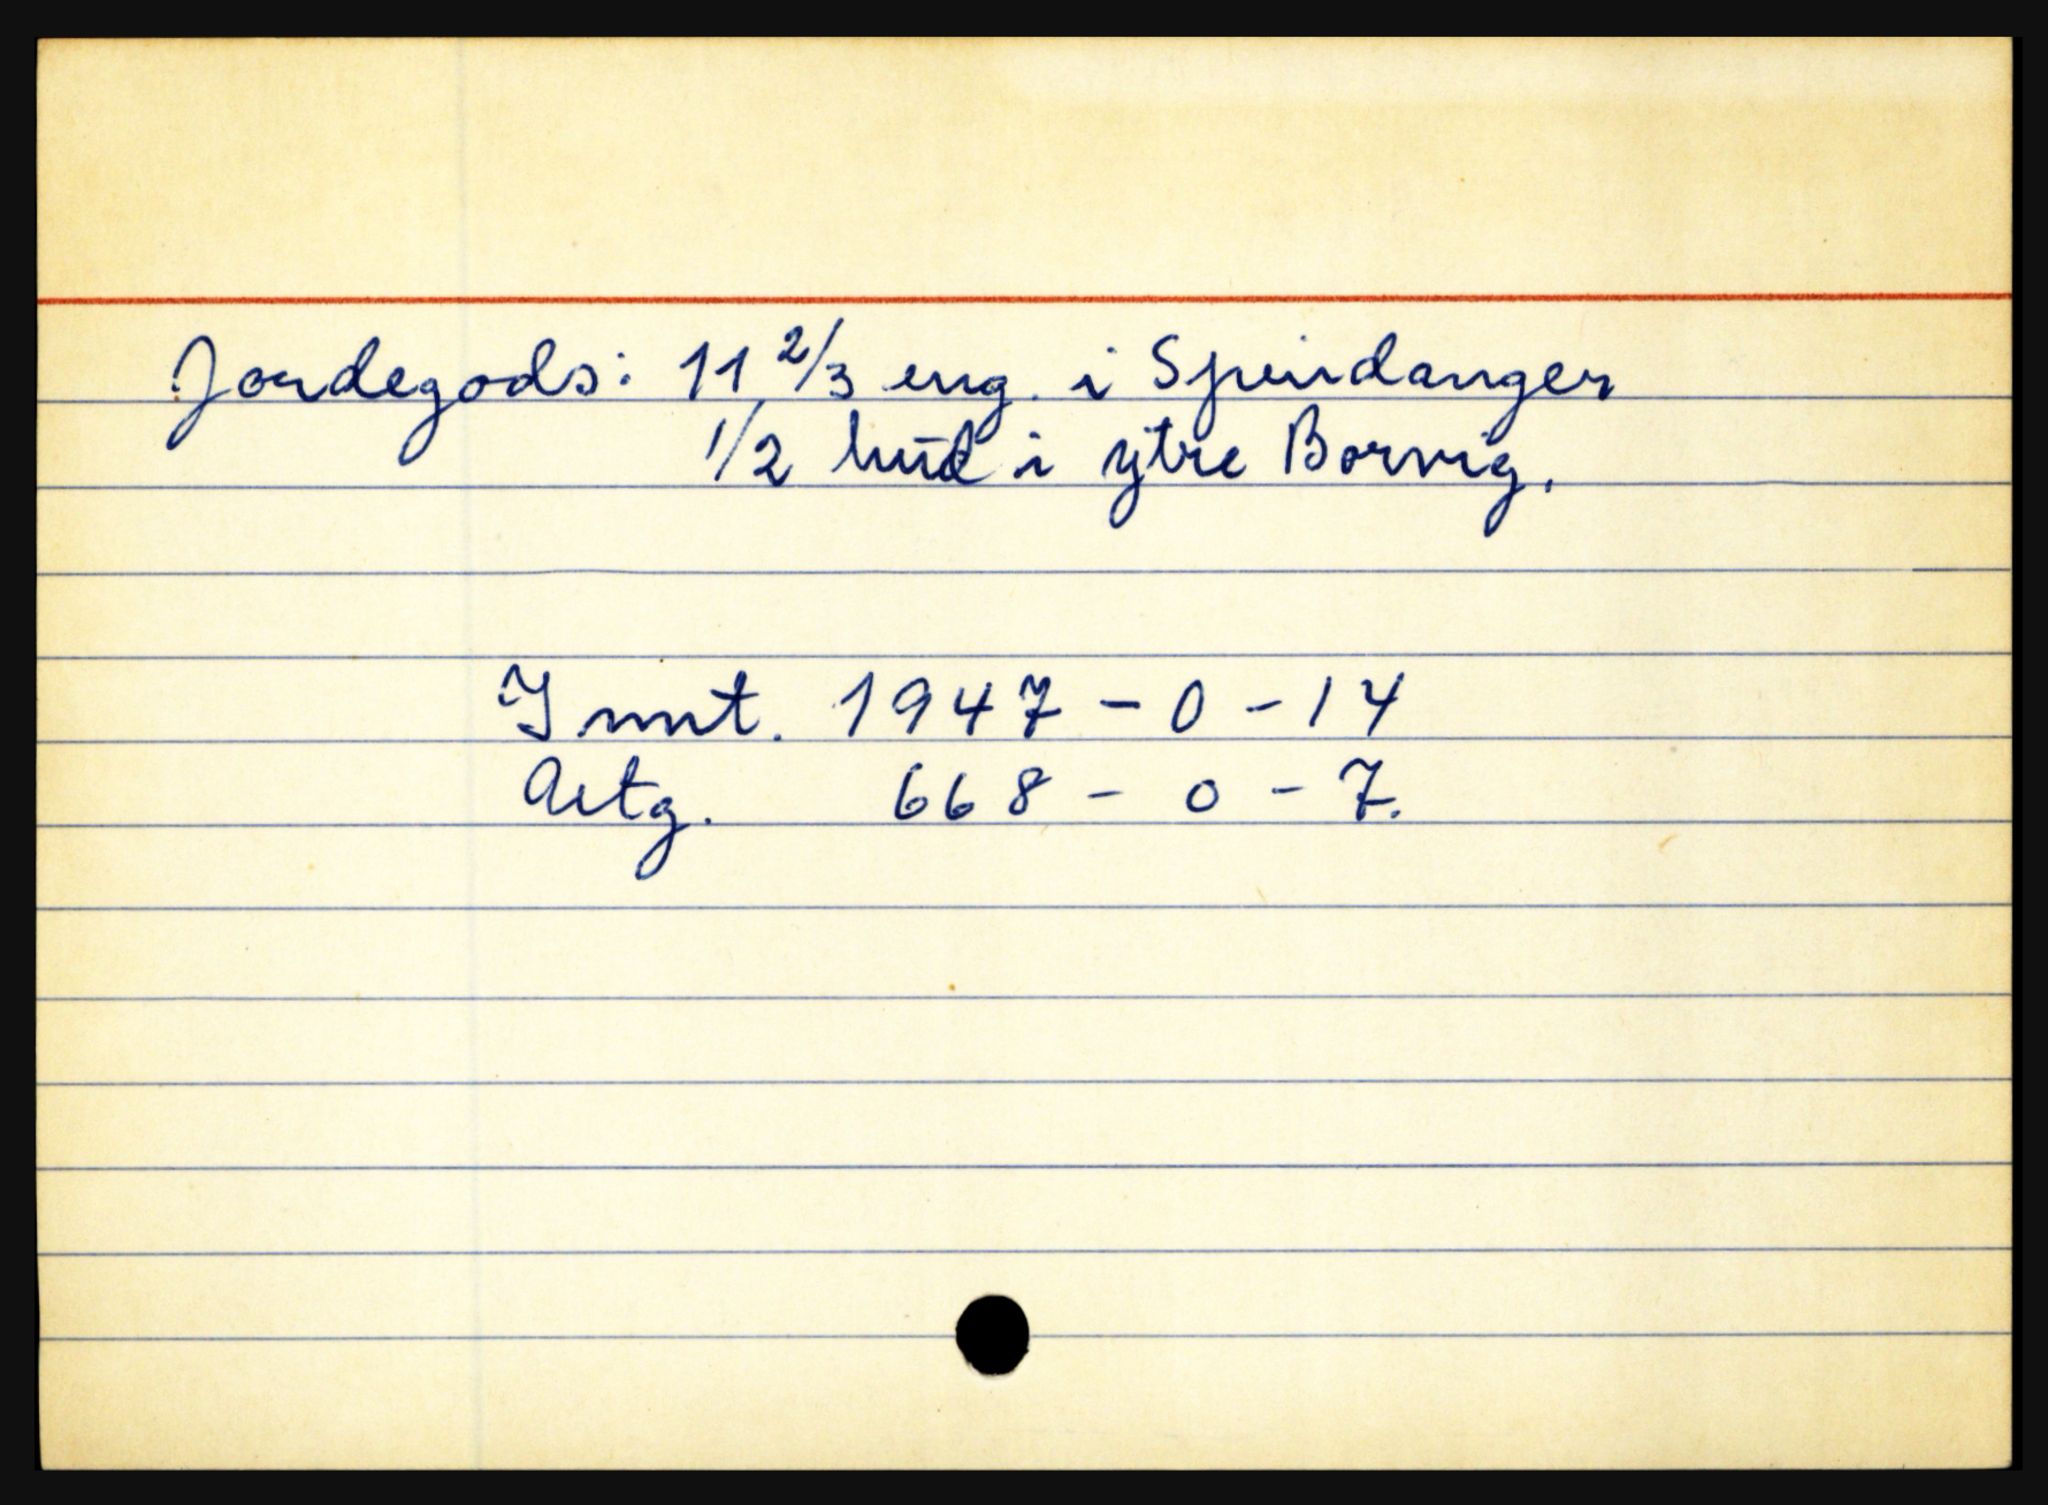 Jordegods: 11 2/3 eng. i Spindanger
1/2 hud i ytre Borvig.
Innt. 1947 - 0 - 14
Utg. 668 - 0 - 7.